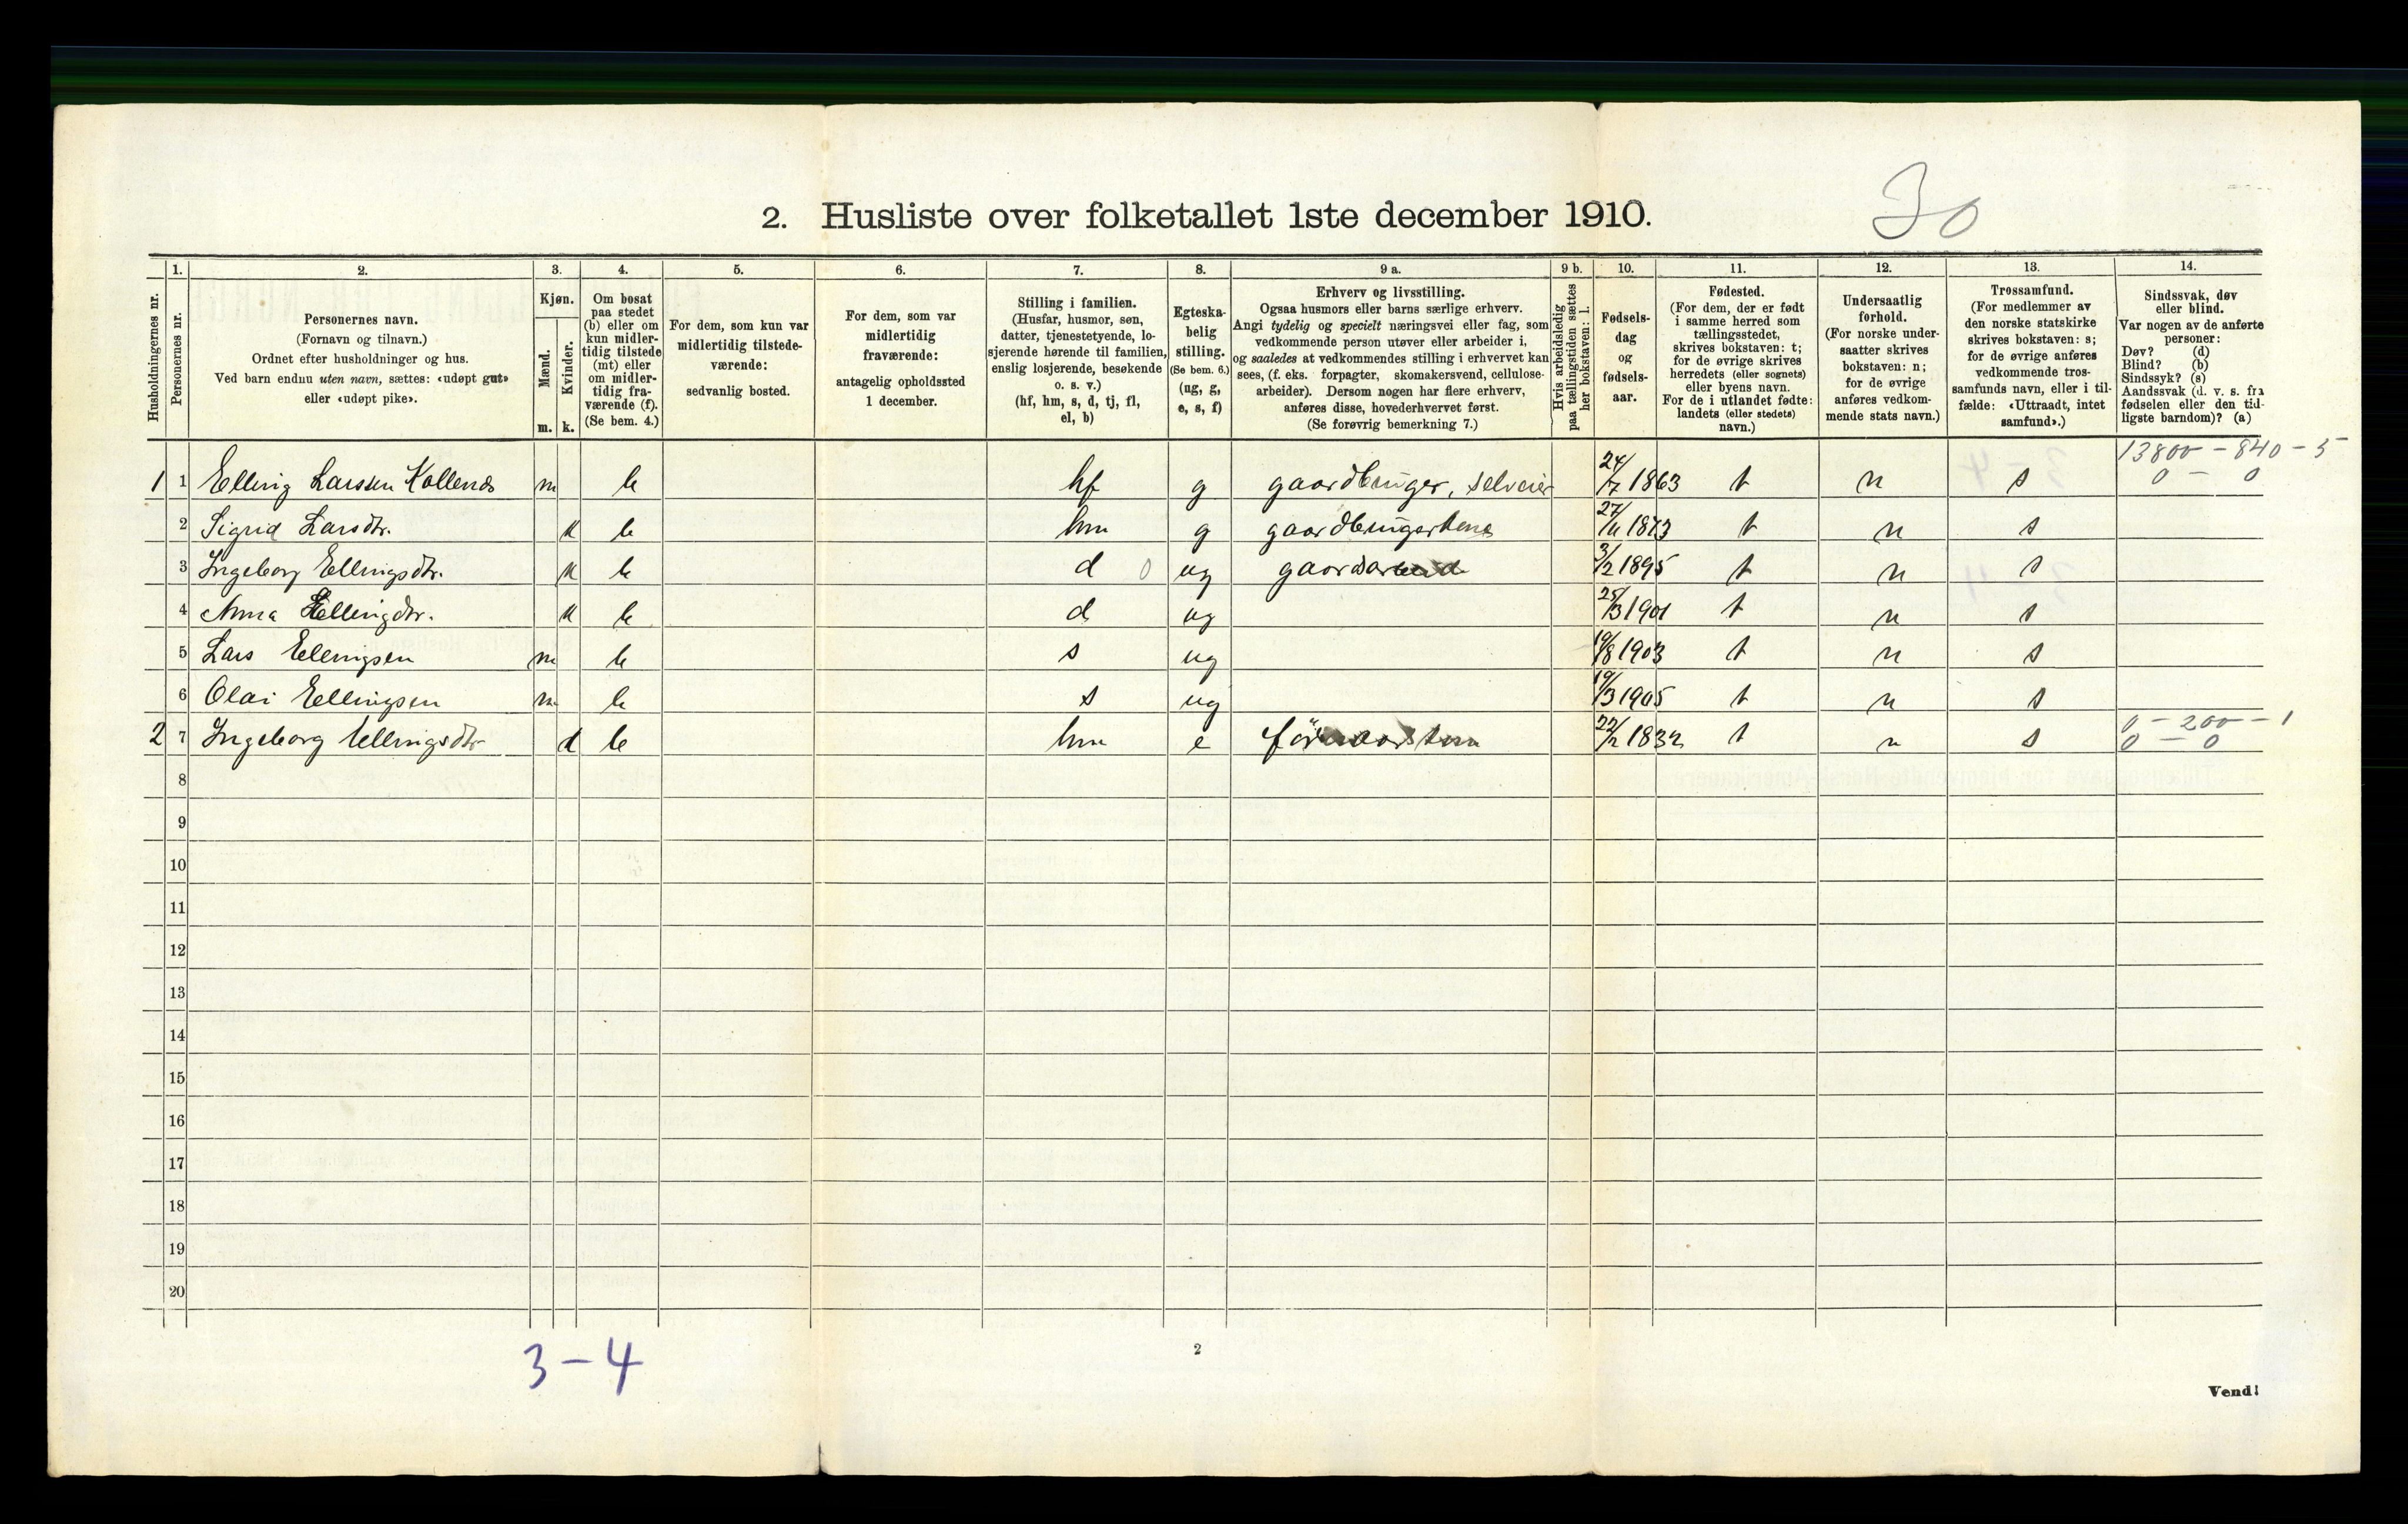 2. Husliste over folketallet 1ste december 1910.
30
Husholdningernes nr.
1.
Personernes nr.
2.
Personernes navn.
(Fornavn og tilnavn.)
Ordnet efter husholdninger og hus.
Ved barn endnu uten navn, sættes: «udøpt gut»
eller «udøpt pike».
3.
Kjøn.
Mænd.
Kvinder.
m. k.
4.
Om bosat
paa stedet
(b) eller om
kun midler-
tidig tilstede
(mt) eller
om midler-
tidig fra-
værende (f).
(Se bem. 4.)
5.
For dem, som kun var
midlertidig tilstede-
værende:
sedvanlig bosted.
6.
For dem, som var
midlertidig
fraværende:
antagelig opholdssted
1 december.
7.
Stilling i familien.
(Husfar, husmor, søn,
datter, tjenestetyende, lo-
sjerende hørende til familien,
enslig losjerende, besøkende
o. s. v.)
(hf, hm, s, d, tj, fl,
el, b)
8.
Egteska-
belig
stilling.
(Se bem. 6.)
(ug, g,
e, s, f)
9 a.
Erhverv og livsstilling.
Ogsaa husmors eller barns særlige erhverv.
Angi tydelig og specielt næringsvei eller fag, som
vedkommende person utøver eller arbeider i,
og saaledes at vedkommendes stilling i erhvervet kan
sees, (f. eks. forpagter, skomakersvend, cellulose-
arbeider). Dersom nogen har flere erhverv,
anføres disse, hovederhvervet først.
(Se forøvrig bemerkning 7.)
9 b.
Hvis arbeidsledig
paa tællingstiden sættes
her bokstaven: l.
10.
Fødsels-
dag
og
fødsels-
aar.
11.
Fødested.
(For dem, der er født
i samme herred som
tællingsstedet,
skrives bokstaven: t;
for de øvrige skrives
herredets (eller sognets)
eller byens navn.
For de i utlandet fødte:
landets (eller stedets)
navn.)
12.
Undersaatlig
forhold.
(For norske under-
saatter skrives
bokstaven: n;
for de øvrige
anføres vedkom-
mende stats navn.)
13.
Trossamfund.
(For medlemmer av
den norske statskirke
skrives bokstaven: s;
for de øvrige anføres
vedkommende tros-
samfunds navn, eller i til-
fælde: «Uttraadt, intet
samfund».)
14.
Sindssvak, døv
eller blind.
Var nogen av de anførte
personer:
Døv? (d)
Blind? (b)
Sindssyk? (s)
Aandssvak (d. v. s. fra
fødselen eller den tid-
ligste barndom)? (a)
13800 - 840 - 5
1 1 Elling Larssen Kollenæs m b hf g gaardbruger, selveier 24/7 1863 t n s 0 - 0
2 Sigrid Larsdtr. k b hm g 27/11 1873 t n s
3 Ingeborg Ellingsdtr. k b d 0 ug gaardarbeid 3/2 1895 t n s
4 Anna Ellingdtr. k b d ug 25/3 1901 t n s
5 Lars Ellingsen m b s ug 19/8 1903 t n s
6 Olai Ellingsen m b s ug 19/3 1905 t n s
0 - 200 - 1
2 7 Ingeborg Ellingsdtr k b hm e 22/2 1832 t n s 0 - 0
8
9
10
11
12
13
14
15
16
17
18
19
20
3-4
2
Vend!